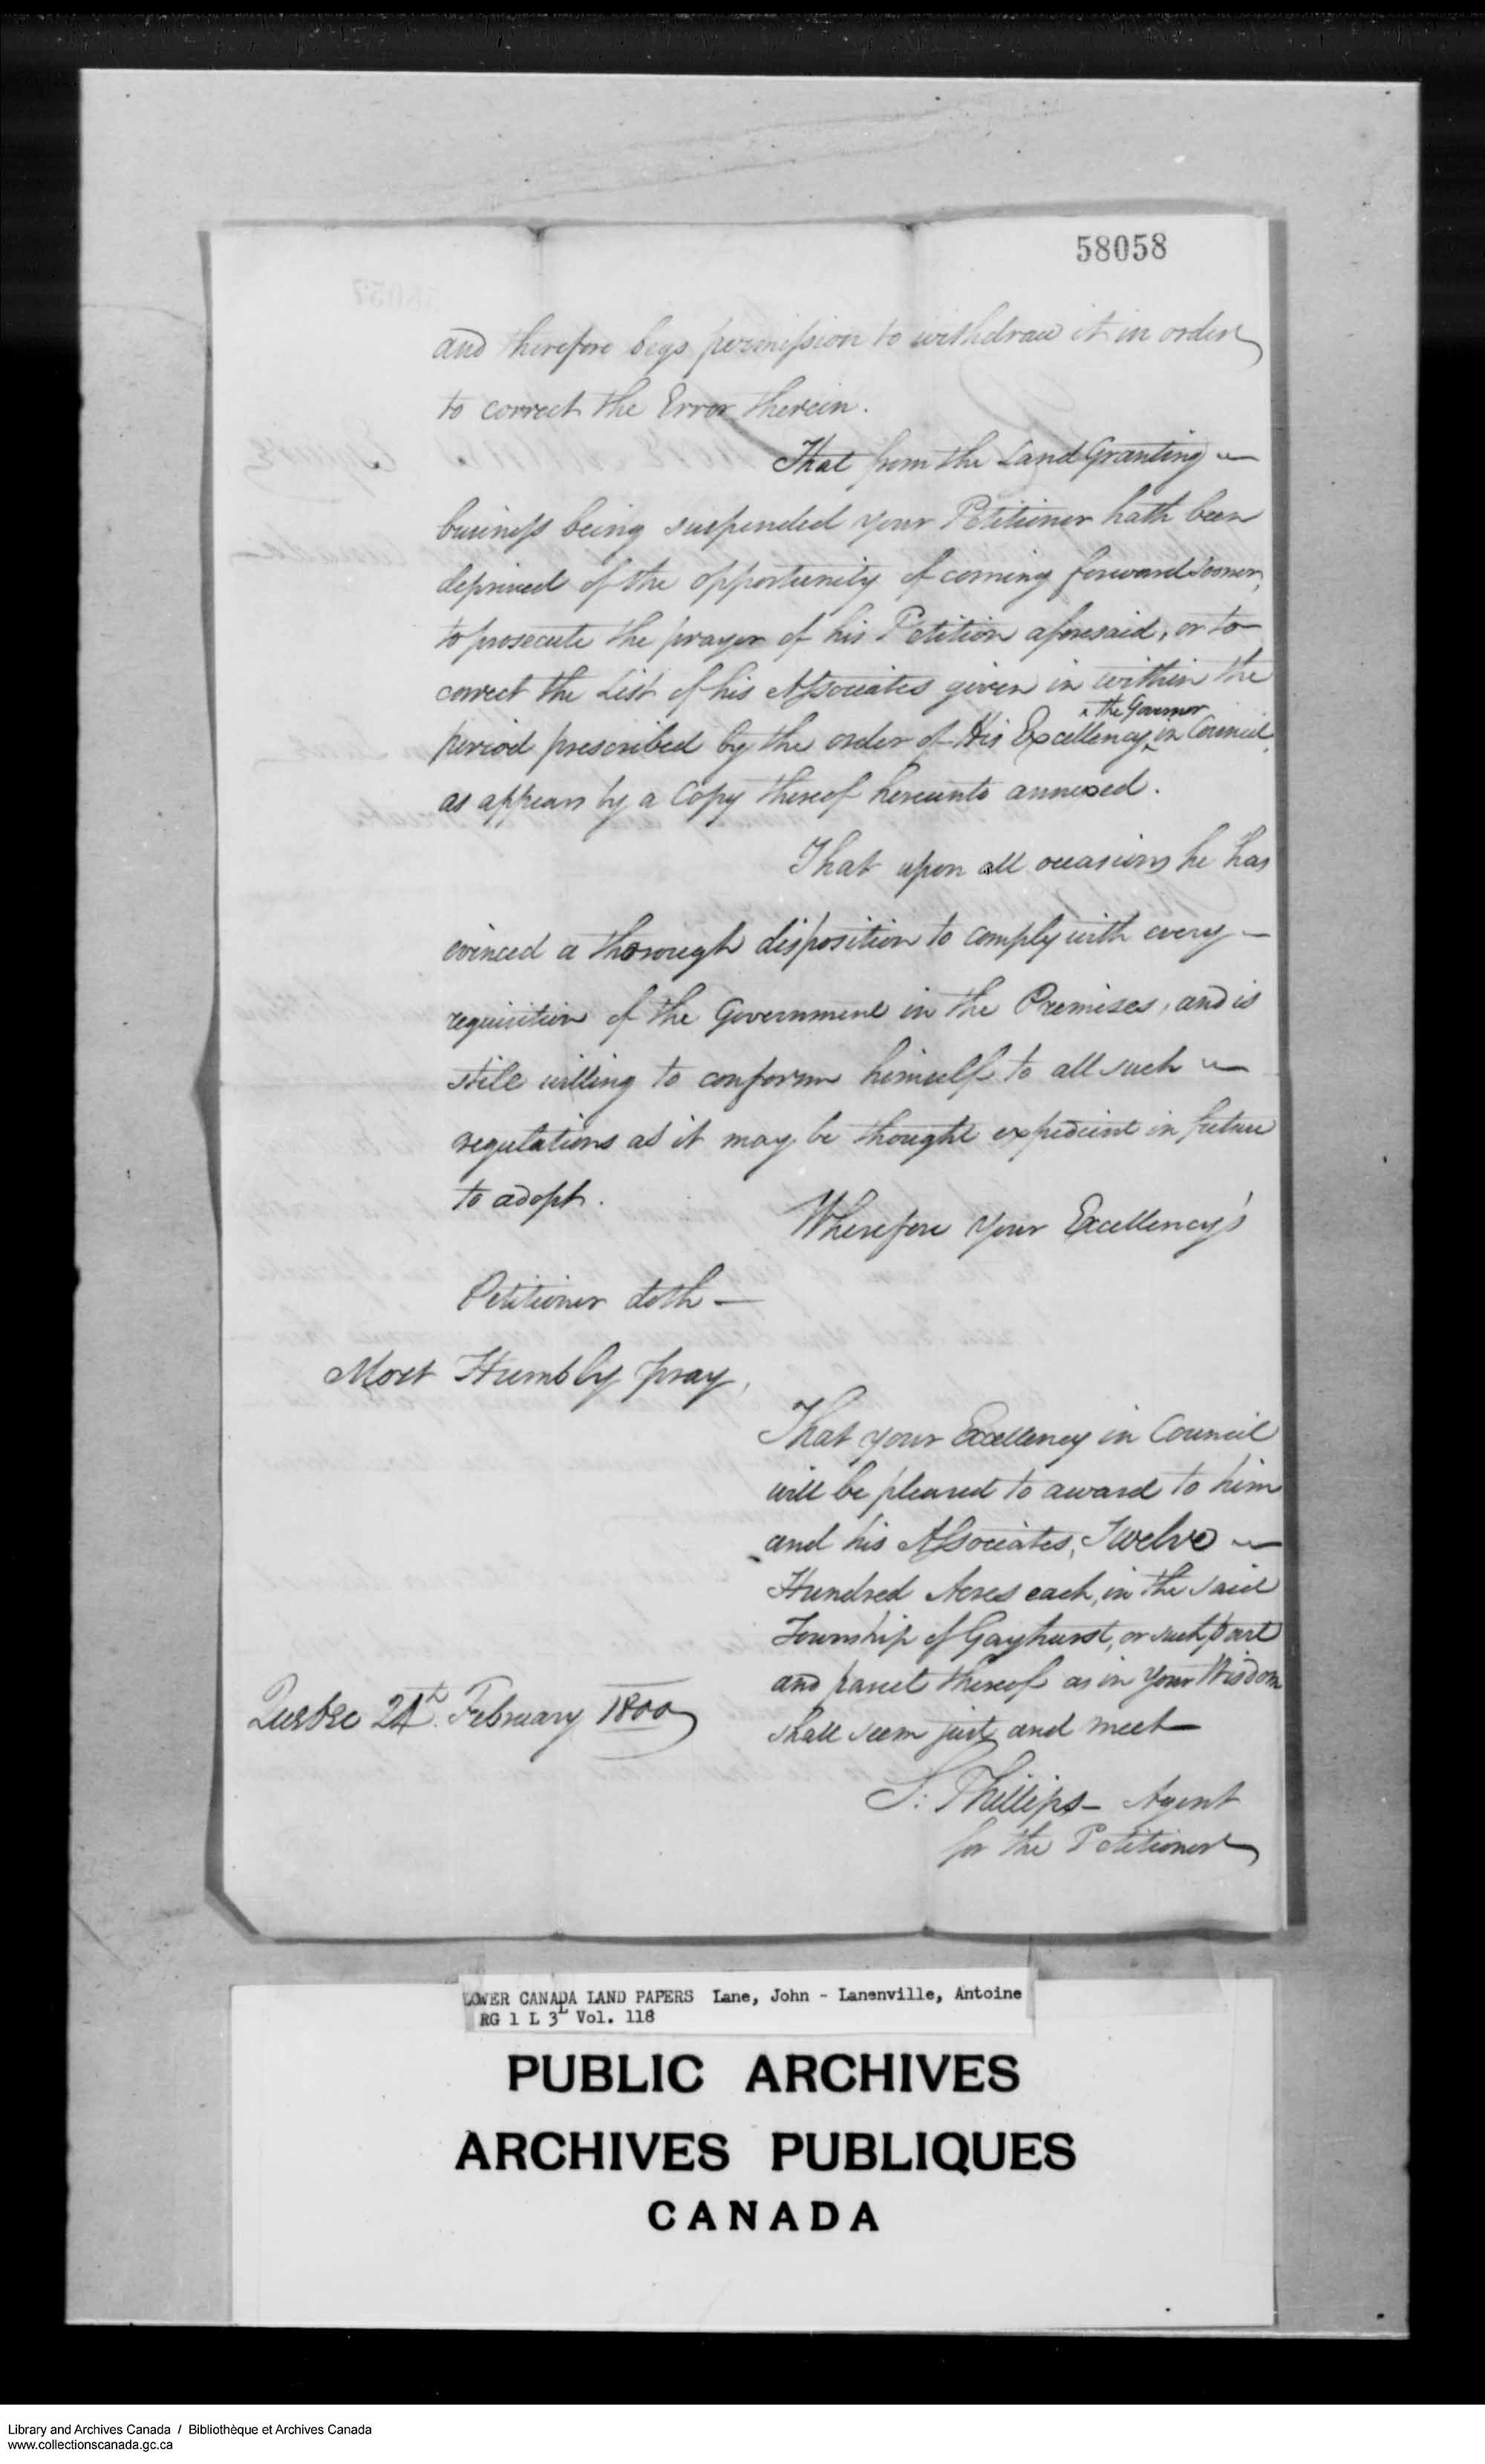 58058
and therefore begs permission to withdraw it in order
to correct the Error therein.
That from the Land Granting
business being suspended your Petitioner hath been
deprived of the opportunity of coming forward sooner,
to prosecute the prayer of his Petition aforesaid, or to
correct the List of his Associates given in within the
the Governor
period prescribed by the order of His Excellency in Council,
as appears by a Copy thereof hereunto annexed.
That upon all occasions he has
evinced a thorough disposition to comply with every —
requisition of the Government in the Premises, and is
stile willing to conform himself to all such
regulations as it may be thought expedient in future
to adopt.
Wherefore your Excellency's
Petitioner doth —
Most Humbly pray,
That your Excellency in Council
will be pleased to award to him
and his Associates, Twelve
Hundred Acres each, in the said
Township of Gayhurst, or such part
and parcel thereof as in your Wisdom
shall seem just and meet —
Quebec 24th. February 1800
S: Phillips — Agent
for the Petitioner
LOWER CANADA LAND PAPERS Lane, John - Lanenville, Antoine
RG 1 L 3L Vol. 118
PUBLIC ARCHIVES
ARCHIVES PUBLIQUES
CANADA
Library and Archives Canada / Bibliothèque et Archives Canada
www.collectionscanada.gc.ca